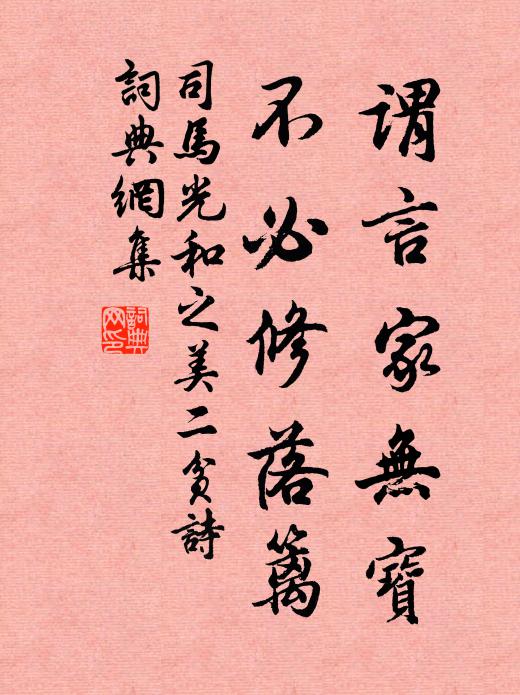 謂言家無寶
不必修落篱
司馬光和之美二贫詩
詞典網集
詞典网印